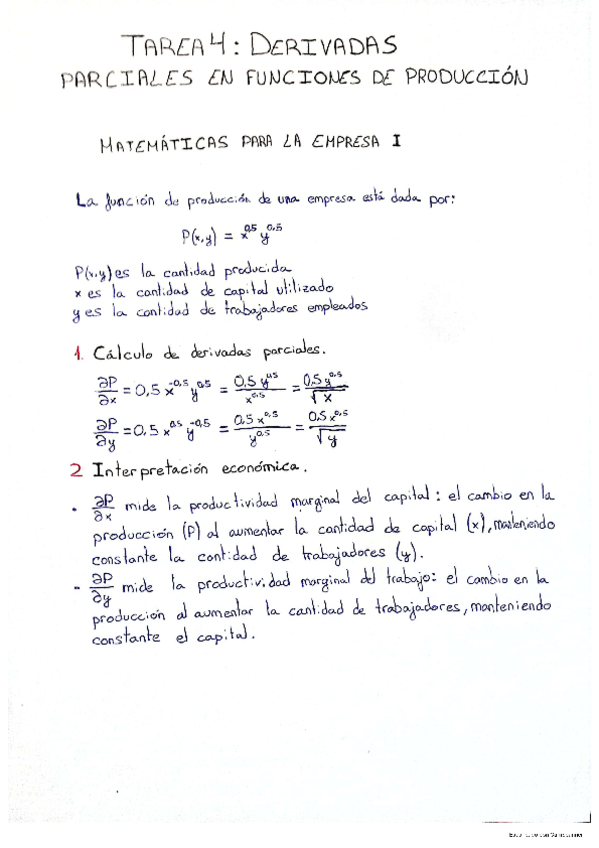 TAREA 4: DERIVADAS
PARCIALES EN FUNCIONES DE PRODUCCIÓN
MATEMÁTICAS PARA LA EMPRESA I
La función de producción de una empresa está dada por:
P(x,y) = x^0,5 y^0,5
P(x,y) es la cantidad producida
x es la cantidad de capital utilizado
y es la cantidad de trabajadores empleados
1. Cálculo de derivadas parciales.
∂P/∂x = 0,5 x^-0,5 y^0,5 = 0,5 y^0,5 / x^0,5 = 0,5 y^0,5 / √x
∂P/∂y = 0,5 x^0,5 y^-0,5 = 0,5 x^0,5 / y^0,5 = 0,5 x^0,5 / √y
2 Interpretación económica.
• ∂P/∂x mide la productividad marginal del capital: el cambio en la
producción (P) al aumentar la cantidad de capital (x), manteniendo
constante la cantidad de trabajadores (y).
- ∂P/∂y mide la productividad marginal del trabajo: el cambio en la
producción al aumentar la cantidad de trabajadores, manteniendo
constante el capital.